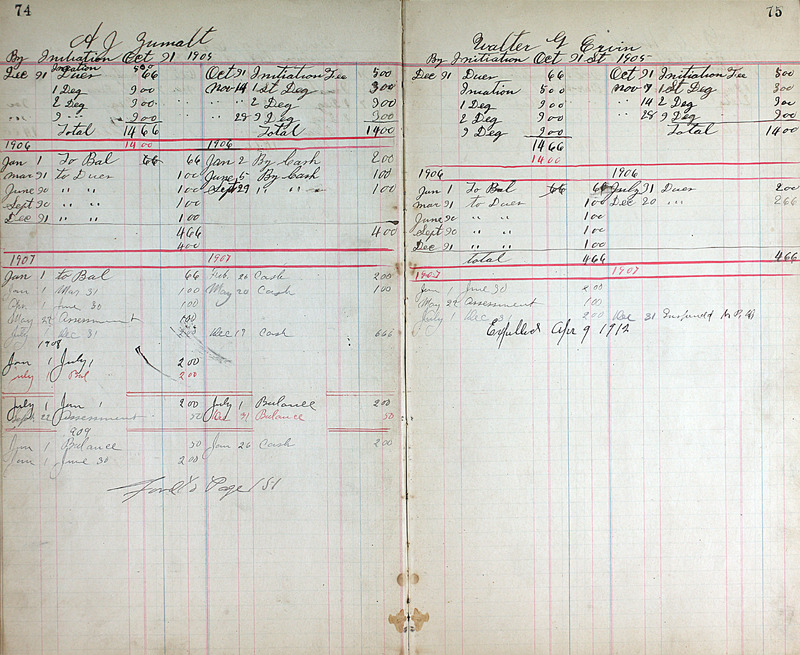 74
A J Zumalt
By Initiation Oct 31 1905
Initiation 500
Dec 31 Dues 66 Oct 31 Initiation Fee 500
1 Deg 300 Nov 14 1st Deg 300
2 Deg 300 " " 2 Deg 300
3 " 300 " 28 3 Deg 300
Total 1466 Total 1400
1400
1906 1906
Jan 1 To Bal 66 66 Jan 2 By Cash 200
Mar 31 to Dues 100 June 5 By Cash 100
June 30 " " 100 Sept 29 " " 100
Sept 30 " " 100
Dec 31 " " 100
466 400
400
1907 1907
Jan 1 to Bal 66 Feb. 26 Cash 200
Jan 1 Mar 31 100 May 20 Cash 100
Apr. 1 June 30 100
May 22 Assessment 100
July 1 Dec 31 Dec 17 Cash 666
1908
Jan 1 July 1 200
July 1 Bal 200
July 1 Jan 1 200 July 1 Balance 200
Sept. 22 Assessment 50 Dec 31 Balance 50
909
Jan 1 Balance 50 Jan 26 Cash 200
Jan 1 June 30 200
Page 151
75
Walter G Ervin
By Initiation Oct 31 St 1905
Dec 31 Dues 66 Oct 31 Initiation Fee 500
Iniation 500 Nov 7 1st Deg 300
1 Deg 300 " 14 2 Deg 300
2 Deg 300 " 28 3 Deg 300
3 Deg 300 Total 1400
1466
1400
1906 1906
Jan 1 To Bal 66 66 July 31 Dues 200
Mar 31 to Dues 100 Dec 20 " " 266
June 30 " " 100
Sept 30 " " 100
Dec 31 " " 100
total 466 466
1907 1907
Jan 1 June 30 200
May 22 Assessment 100
July 1 Dec 31 200 Dec 31 Suspend N.P.D
Expelled Apr 9 1912